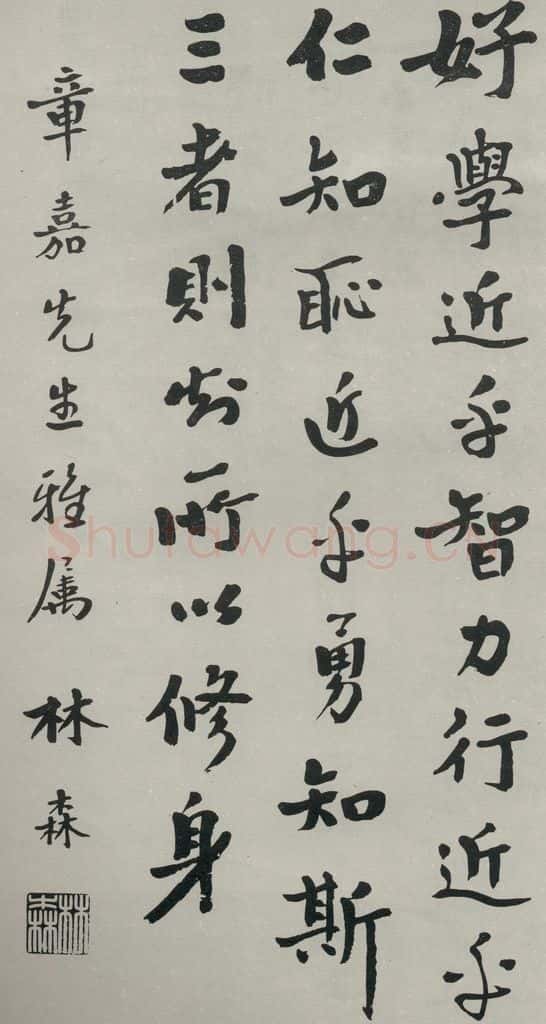 好學近乎智力行近乎
仁知恥近乎勇知斯
三者則知所以修身
章嘉先生雅属 林森
林森
Shufawang.cn